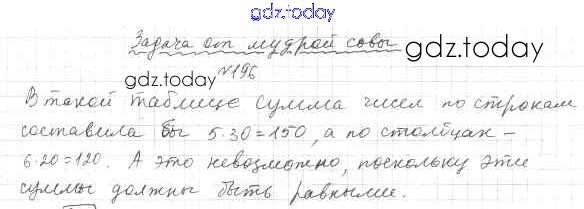 gdz.today
Задача от мудрой совы
gdz.today
gdz.today
№196
В такой таблице сумма чисел по строкам
составила бы 5·30=150, а по столбцам –
6·20=120. А это невозможно, поскольку эти
суммы должны быть равными.